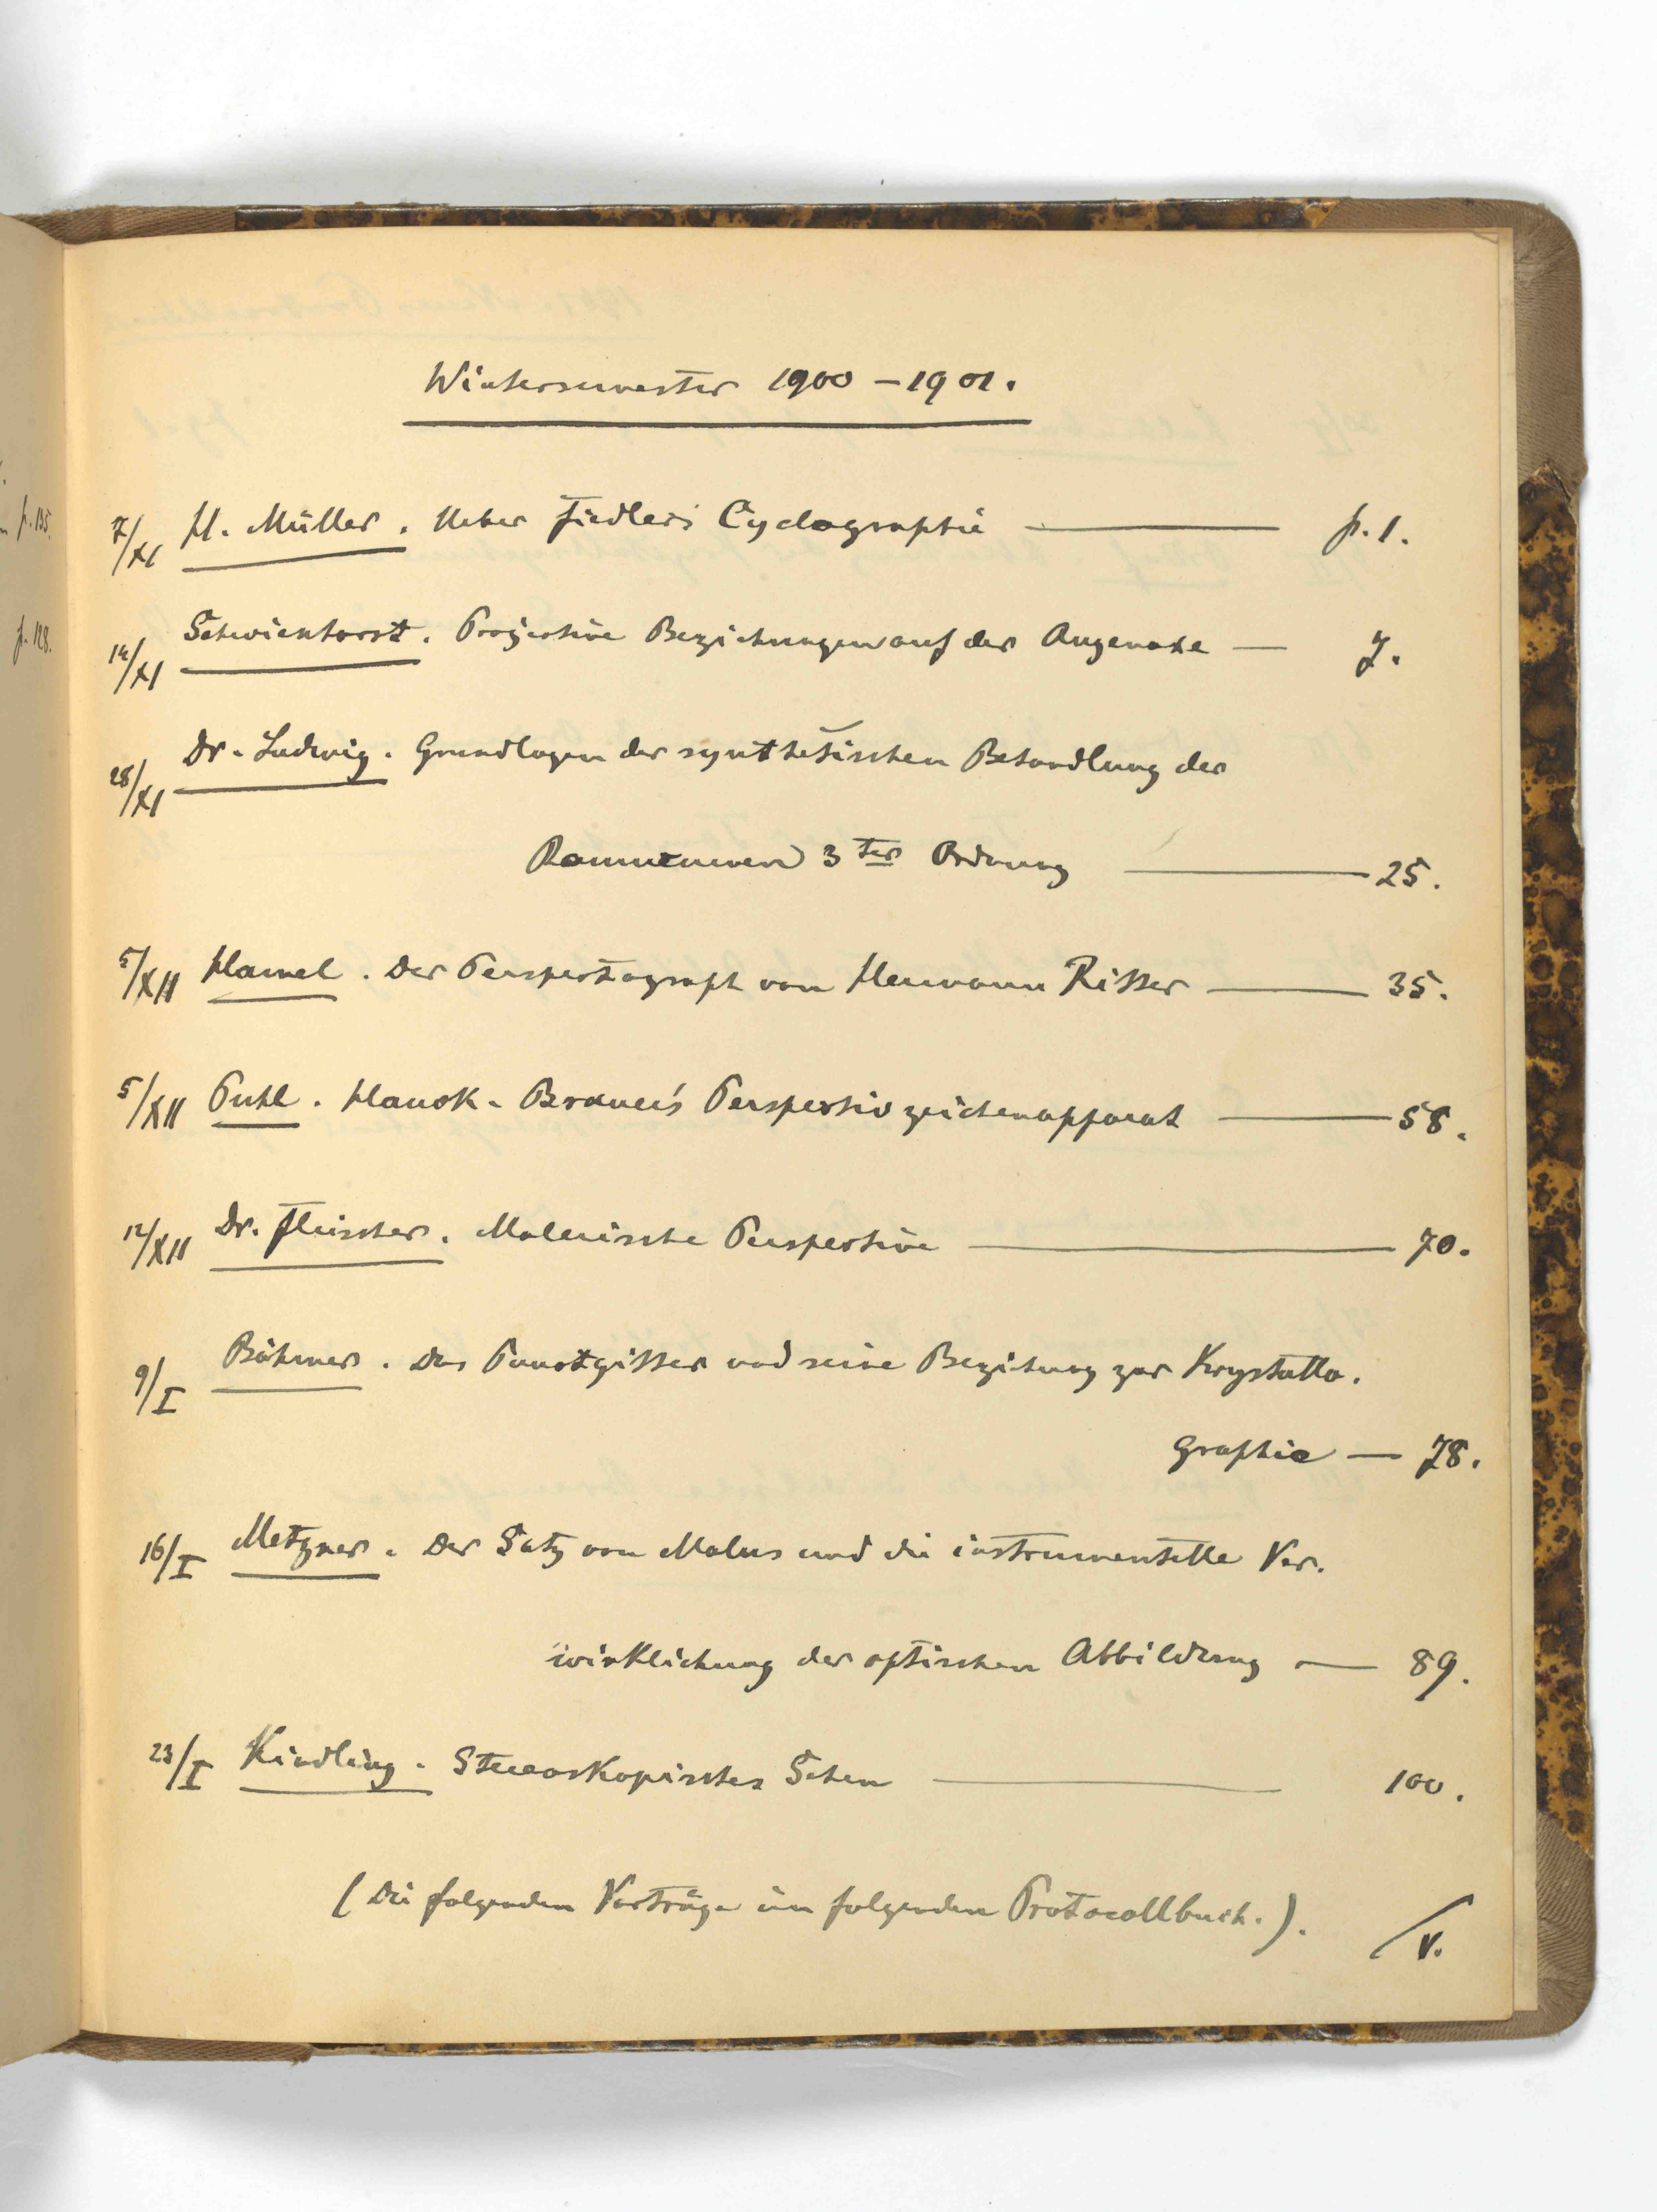 Wintersemester 1900–1901.
n p. 135.
7/XI H. Müller. Ueber Fiedler's Cyclographie — p. 1.
p. 128.
14/XI Schwientorst. Projective Beziehungen auf der Augenaxe — 7.
28/XI Dr. Ludwig. Grundlagen der synthetischen Behandlung der
Raumcurven 3ter Ordnung — 25.
5/XII Hamel. Der Perspectograph von Hermann Ritter — 35.
5/XII Puhl. Hauck-Brauer's Perspectivzeichenapparat — 58.
12/XII Dr. Fleischer. Malerische Perspective — 70.
9/I Böhmer. Das Punctgitter und seine Beziehung zur Krystallo-
graphie — 78.
16/I Metzner. Der Satz von Malus und die instrumentelle Ver-
wirklichung der optischen Abbildung — 89.
23/I Kindling. Stereoskopisches Sehen — 100.
(Die folgenden Vorträge im folgenden Protocollbuch.).
/v.